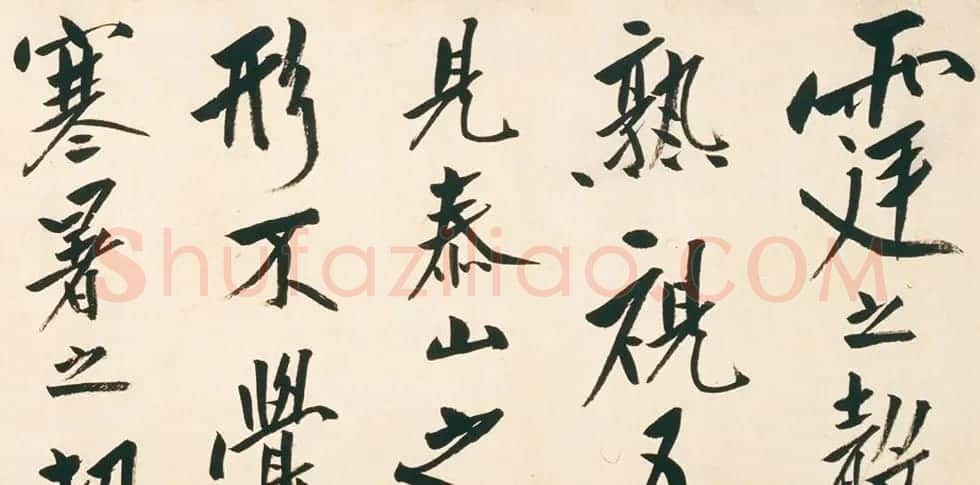 霆之聲
熟視
見泰山之
形不覺
寒暑之切
Shufaziliao.COM